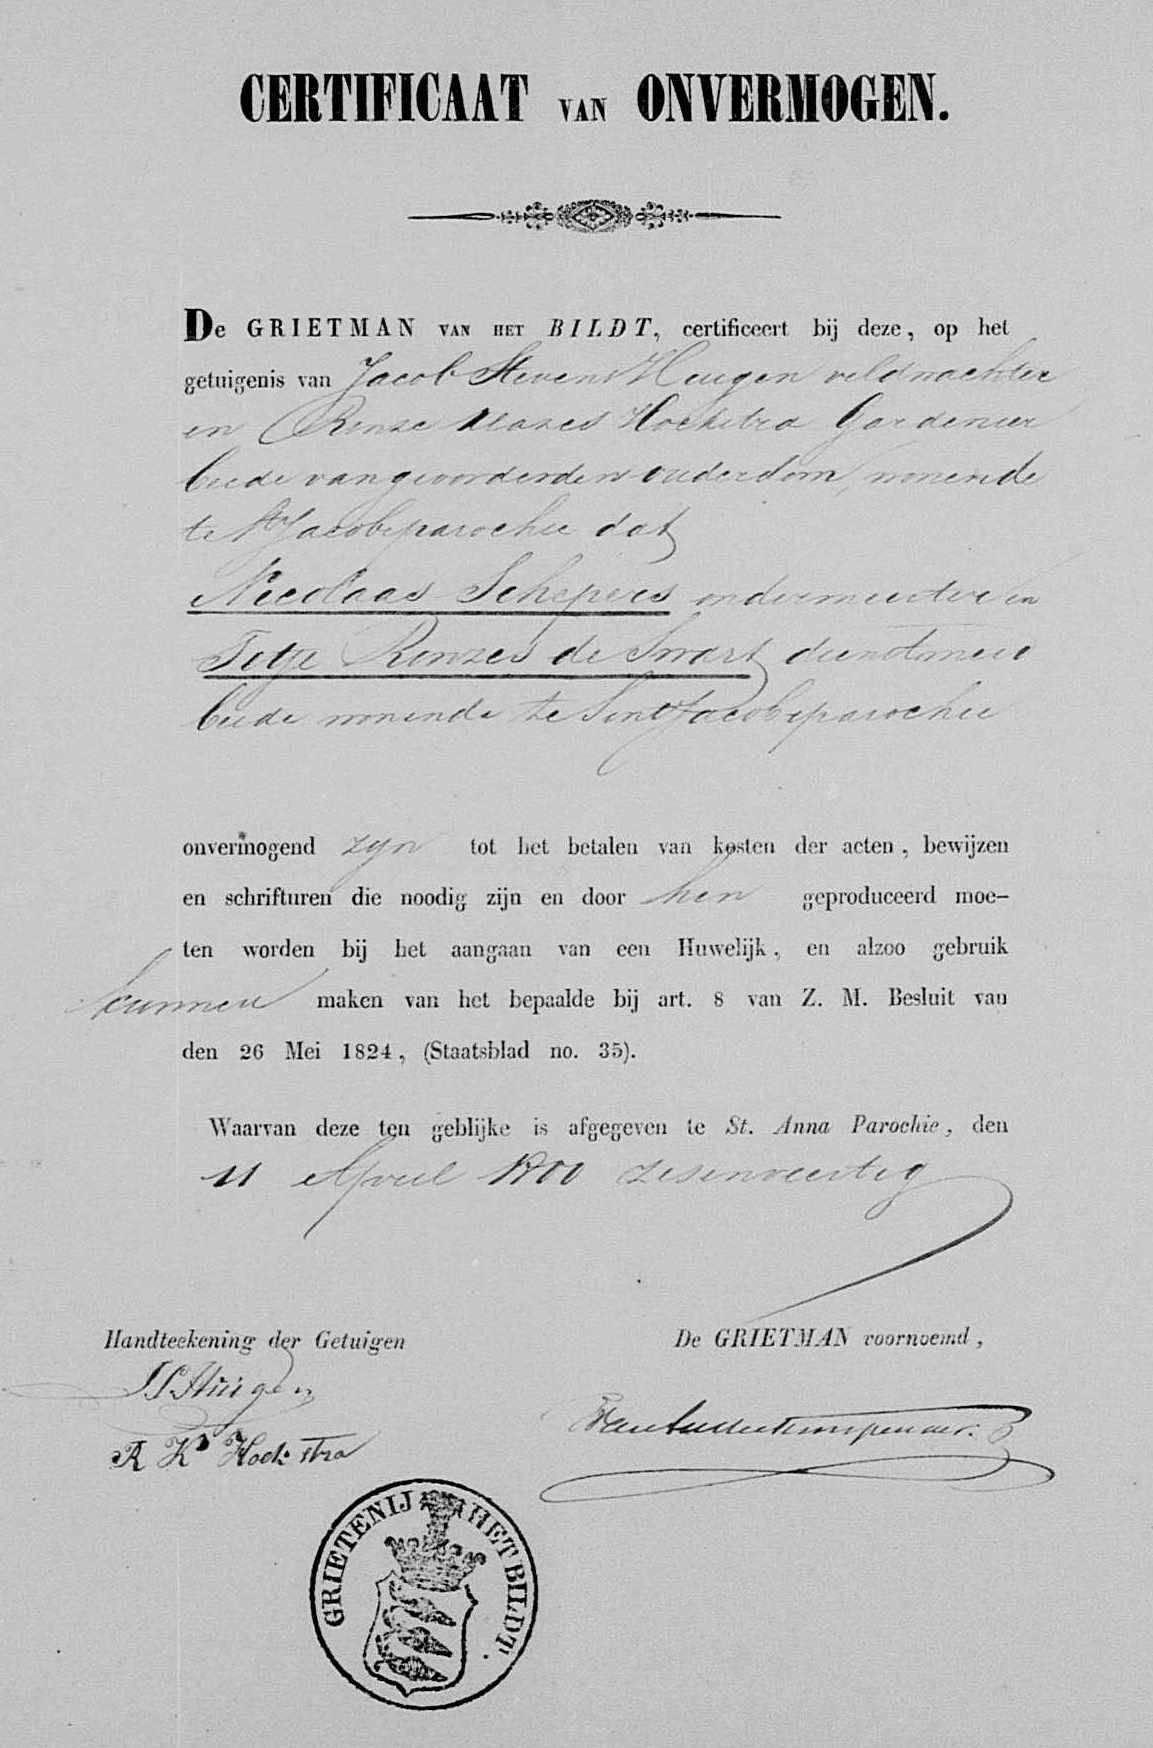 CERTIFICAAT VAN ONVERMOGEN.
De GRIETMAN VAN HET BILDT, certificeert bij deze, op het
getuigenis van Jacob Stevens Huigen veldwachter
en Rinse Klazes Hoekstra Gardenier
beide van gevorderden ouderdom, wonende
te St Jacobiparochie dat
Nicolaas Schepers ondermeester en
Tetje Rinzes de Swart dienstmeid
beide wonende te Sint Jacobiparochie
onvermogend zyn tot het betalen van kosten der acten, bewijzen
en schrifturen die noodig zijn en door hen geproduceerd moe-
ten worden bij het aangaan van een Huwelijk, en alzoo gebruik
kunnen maken van het bepaalde bij art. 8 van Z. M. Besluit van
den 26 Mei 1824, (Staatsblad no. 35).
Waarvan deze ten geblijke is afgegeven te St. Anna Parochie, den
11 April 1800 zesenveertig
Handteekening der Getuigen
De GRIETMAN voornoemd,
J S Huigen
R Ks Hoekstra
GRIETENIJ HET BILDT